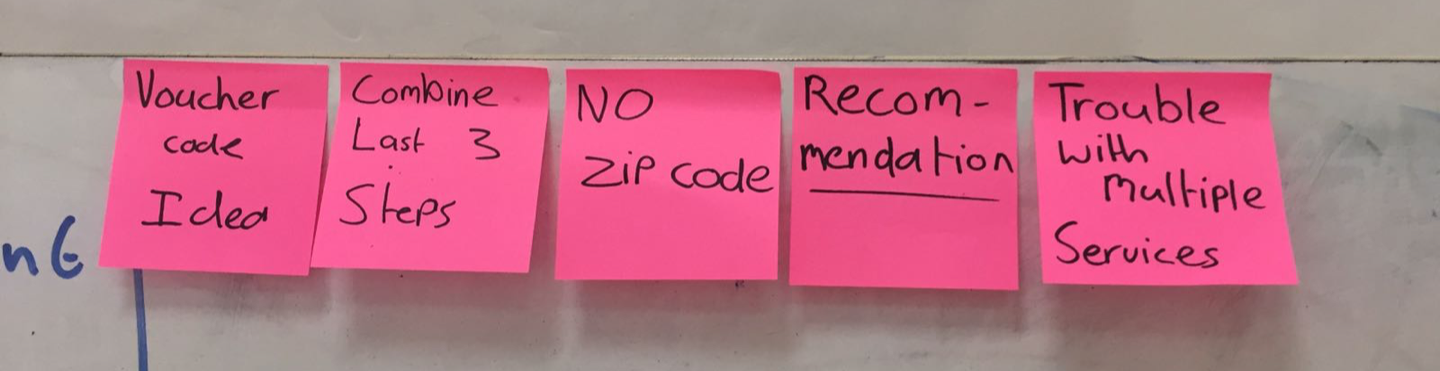 Voucher
code
Idea
Combine
Last 3
Steps
NO
zip code
Recom-
mendation
Trouble
with
multiple
Services